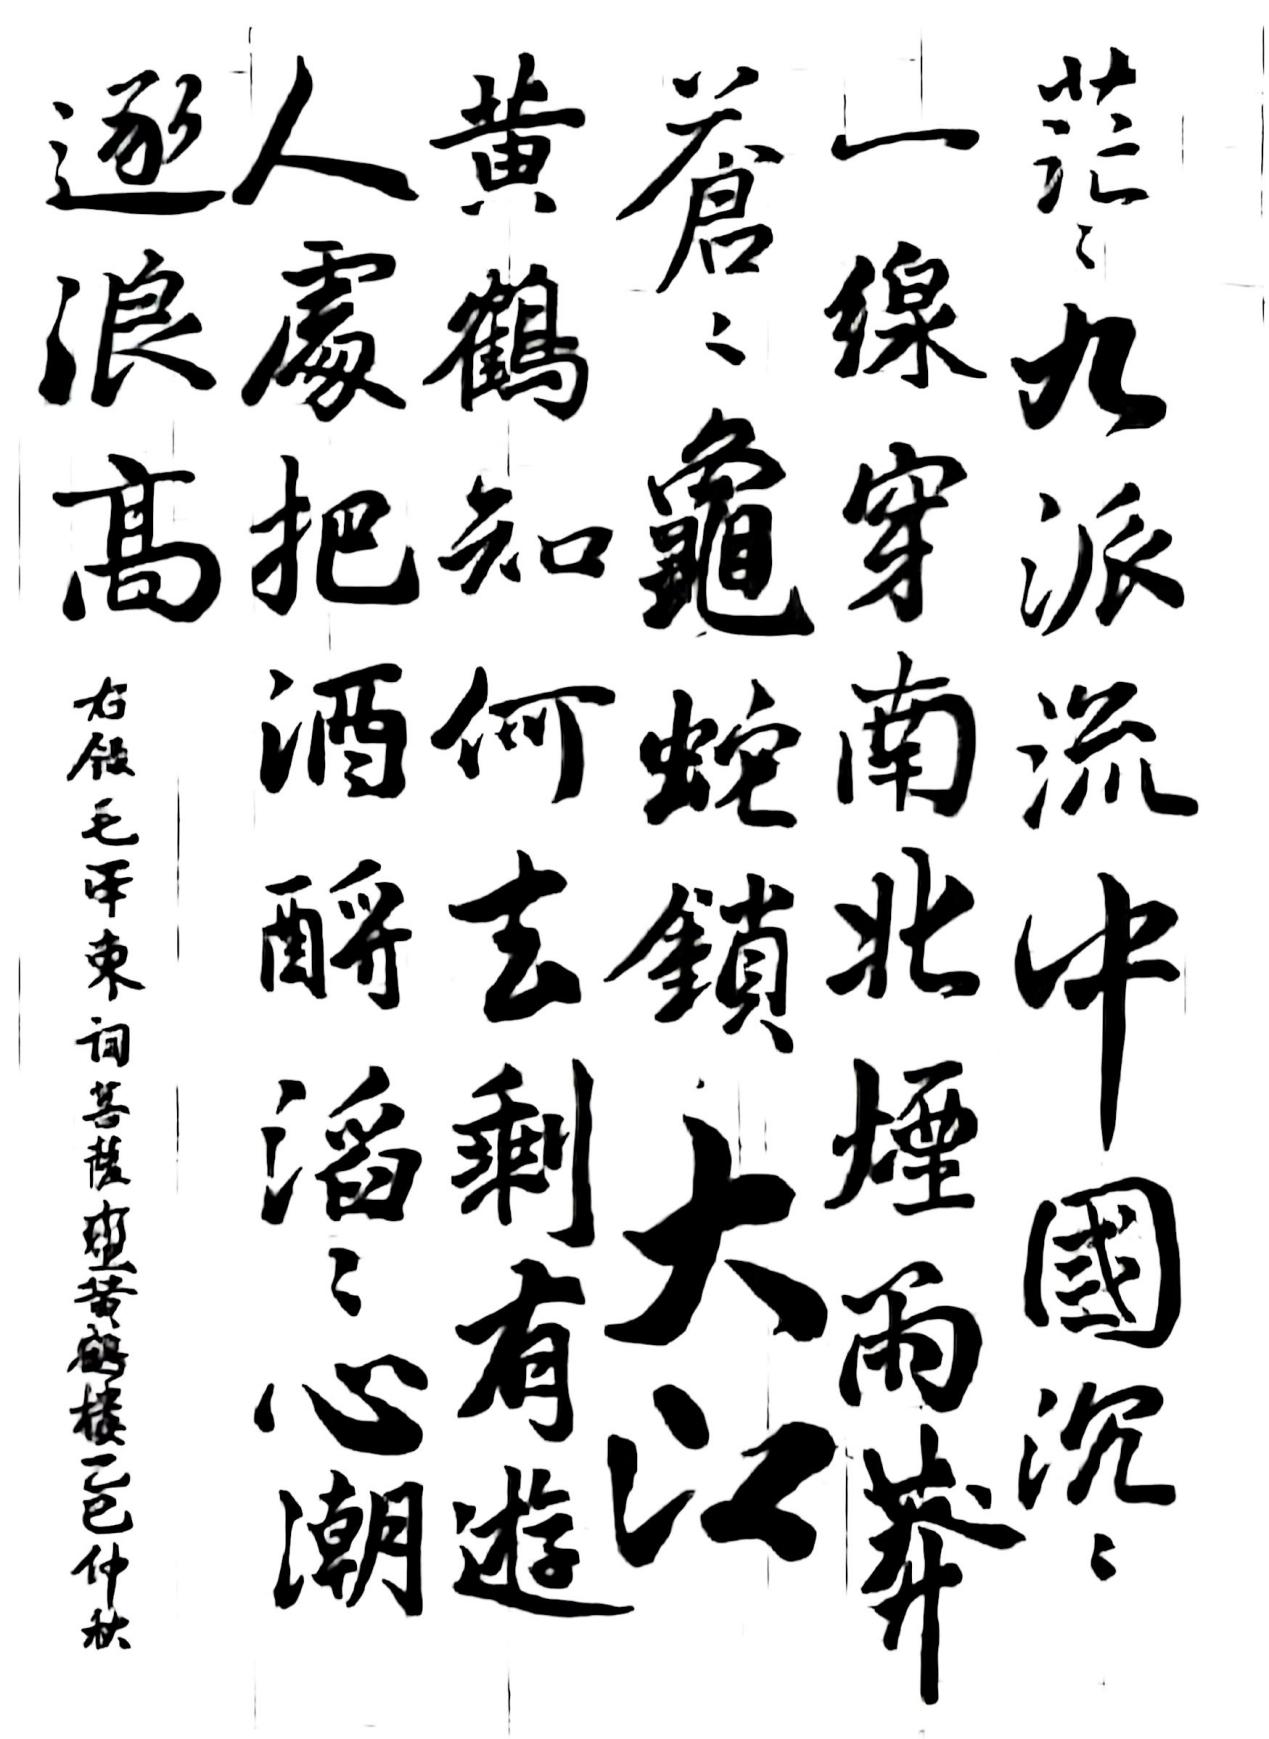 茫〻九派流中國沉〻
一線穿南北煙雨莽
蒼〻龜蛇鎖大江
黄鶴知何去剩有遊
人處把酒酹滔〻心潮
逐浪高
右錄毛澤東詞菩薩蠻黄鶴樓乙巳仲秋